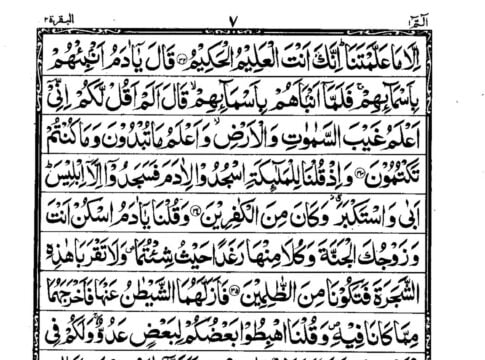 الٓمّٓ ١ ٧ البقرة ٢
اِلَّا مَا عَلَّمْتَنَا ؕ اِنَّكَ اَنْتَ الْعَلِيْمُ الْحَكِيْمُ ﴿۳۲﴾ قَالَ يٰۤاٰدَمُ اَنْۢبِئْهُمْ
بِاَسْمَآئِهِمْ ۚ فَلَمَّاۤ اَنْۢبَاَهُمْ بِاَسْمَآئِهِمْ ۙ قَالَ اَلَمْ اَقُلْ لَّكُمْ اِنِّيْۤ
اَعْلَمُ غَيْبَ السَّمٰوٰتِ وَالْاَرْضِ ۙ وَاَعْلَمُ مَا تُبْدُوْنَ وَمَا كُنْتُمْ
تَكْتُمُوْنَ ﴿۳۳﴾ وَاِذْ قُلْنَا لِلْمَلٰٓئِكَةِ اسْجُدُوْا لِاٰدَمَ فَسَجَدُوْۤا اِلَّاۤ اِبْلِيْسَ ؕ
اَبٰى وَاسْتَكْبَرَ ٭۫ وَكَانَ مِنَ الْكٰفِرِيْنَ ﴿۳۴﴾ وَقُلْنَا يٰۤاٰدَمُ اسْكُنْ اَنْتَ
وَزَوْجُكَ الْجَنَّةَ وَكُلَا مِنْهَا رَغَدًا حَيْثُ شِئْتُمَا ۪ وَلَا تَقْرَبَا هٰذِهِ
الشَّجَرَةَ فَتَكُوْنَا مِنَ الظّٰلِمِيْنَ ﴿۳۵﴾ فَاَزَلَّهُمَا الشَّيْطٰنُ عَنْهَا فَاَخْرَجَهُمَا
مِمَّا كَانَا فِيْهِ ۪ وَقُلْنَا اهْبِطُوْا بَعْضُكُمْ لِبَعْضٍ عَدُوٌّ ۚ وَلَكُمْ فِى